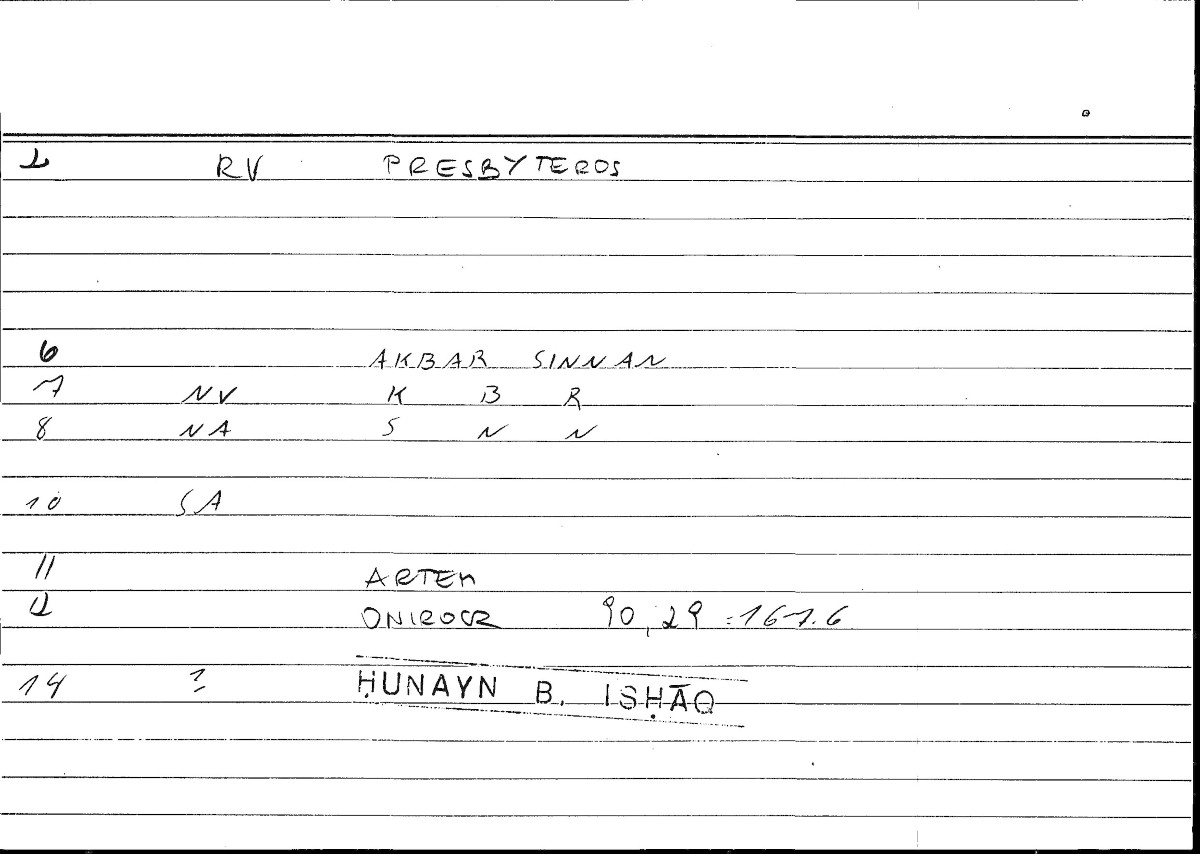 2 RV PRESBYTEROS
6 AKBAR SINNAN
7 NV K B R
8 NA S N N
10 SA
11 ARTEM
12 ONIROCR 90,29 = 167.6
14 ? ḤUNAYN B. ISḤĀQ